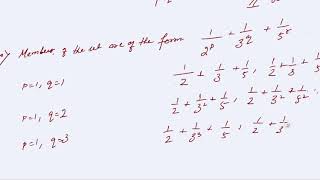 Members of the set are of the form 1/2^p + 1/3^q + 1/5^r
p=1, q=1 1/2 + 1/3 + 1/5, 1/2 + 1/3 +
p=1, q=2 1/2 + 1/3² + 1/5, 1/2 + 1/3² + 1/5²
p=1, q=3 1/2 + 1/3³ + 1/5, 1/2 + 1/3